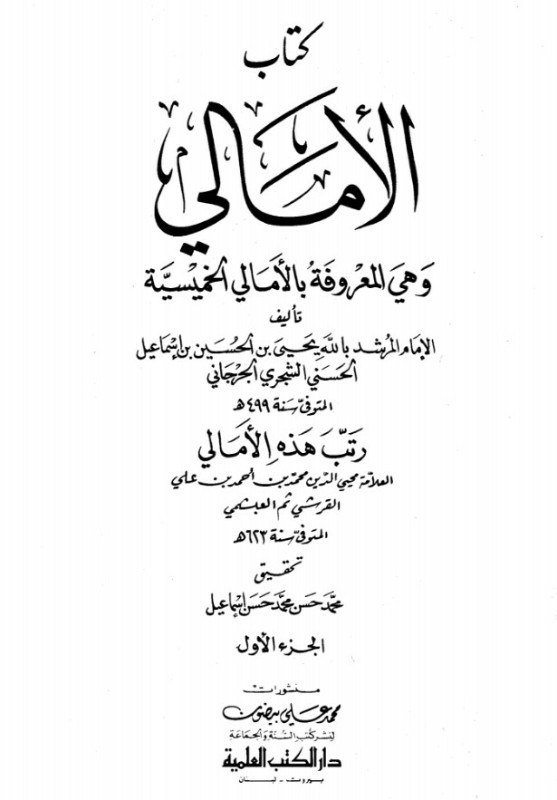 كتاب
الأمالي
وهي المعروفة بالأمالي الخميسية
تأليف
الإمام المرشد بالله يحيى بن الحسين بن إسماعيل
الحسني الشجري الجرجاني
المتوفى سنة ٤٩٩ هـ
رتّب هذه الأمالي
العلامة محيي الدين محمد بن أحمد بن علي
القرشي ثم العبشمي
المتوفى سنة ٦٢٣ هـ
تحقيق
محمد حسن محمد حسن إسماعيل
الجزء الأول
منشورات
محمد علي بيضون
لنشر كتب السنة والجماعة
دار الكتب العلمية
بيروت - لبنان